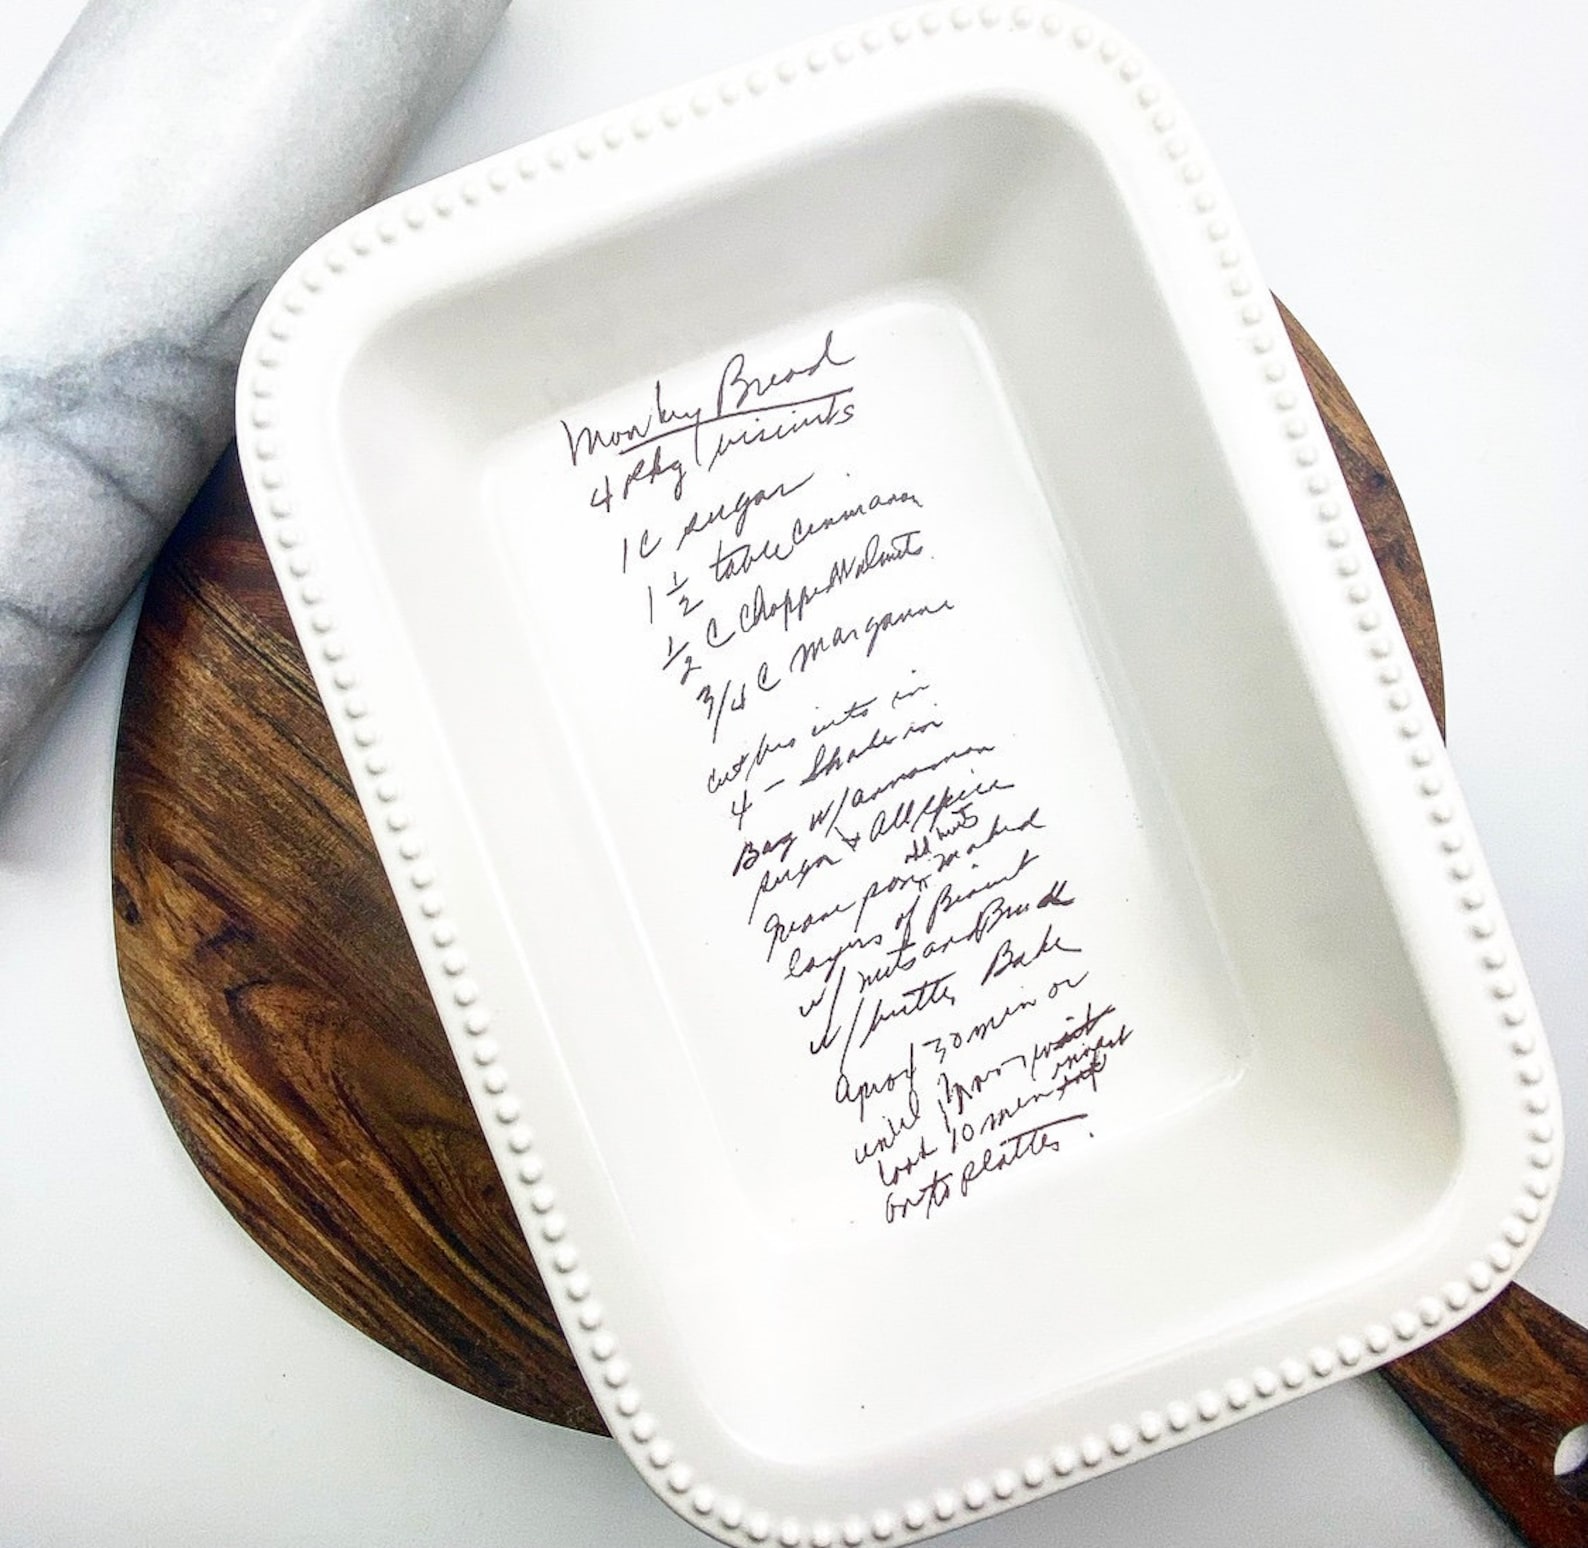 Monkey Bread
4 Pkg biscuits
1 C sugar
1 1/2 table Cinnamon
1/2 C Chopped Walnuts.
3/4 C Margarine
cut bis cuts in
4 - Shake in
Bag w/ cinnamon
sugar & All spice
add nuts
Grease pan, maked
layers of Biscuit
w/ nuts and Brush
w/ butter Bake
Aprox 30 min or
until brown, wait
10 min invert
onto platter.